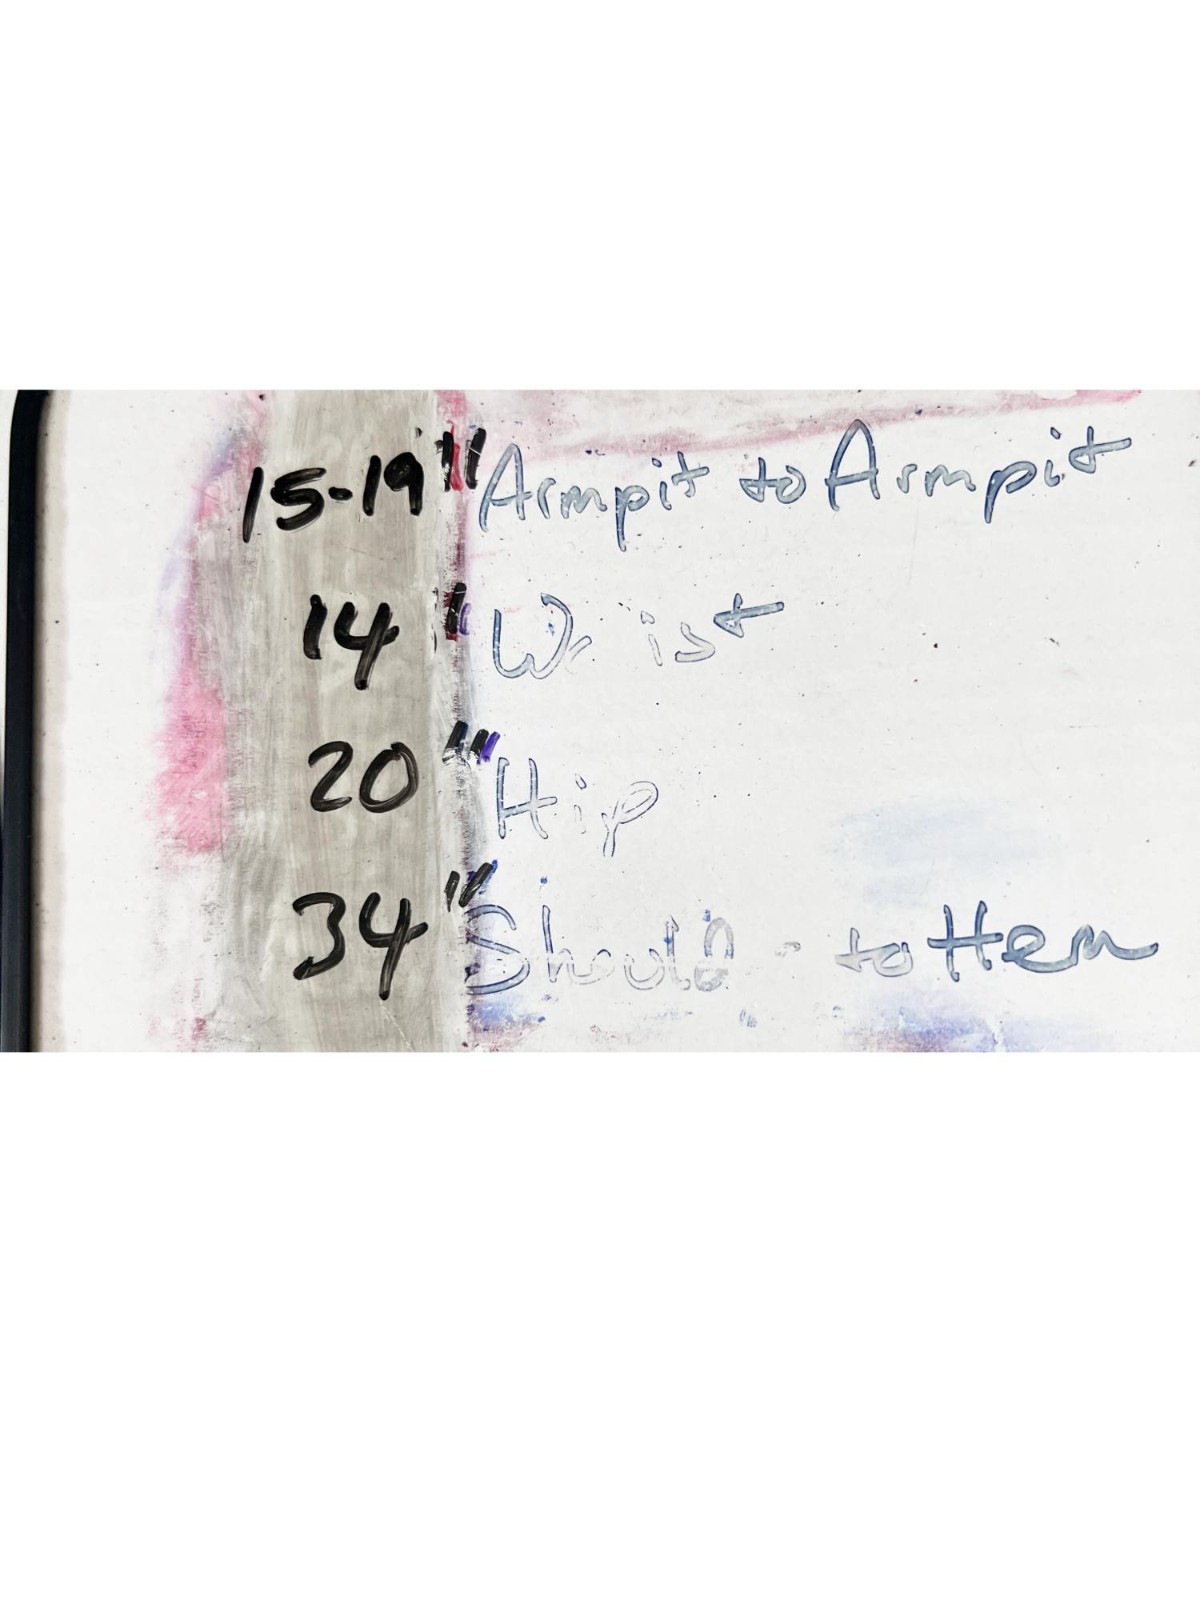 15-19" Armpit to Armpit
14" Waist
20" Hip
34" Should - to Hem